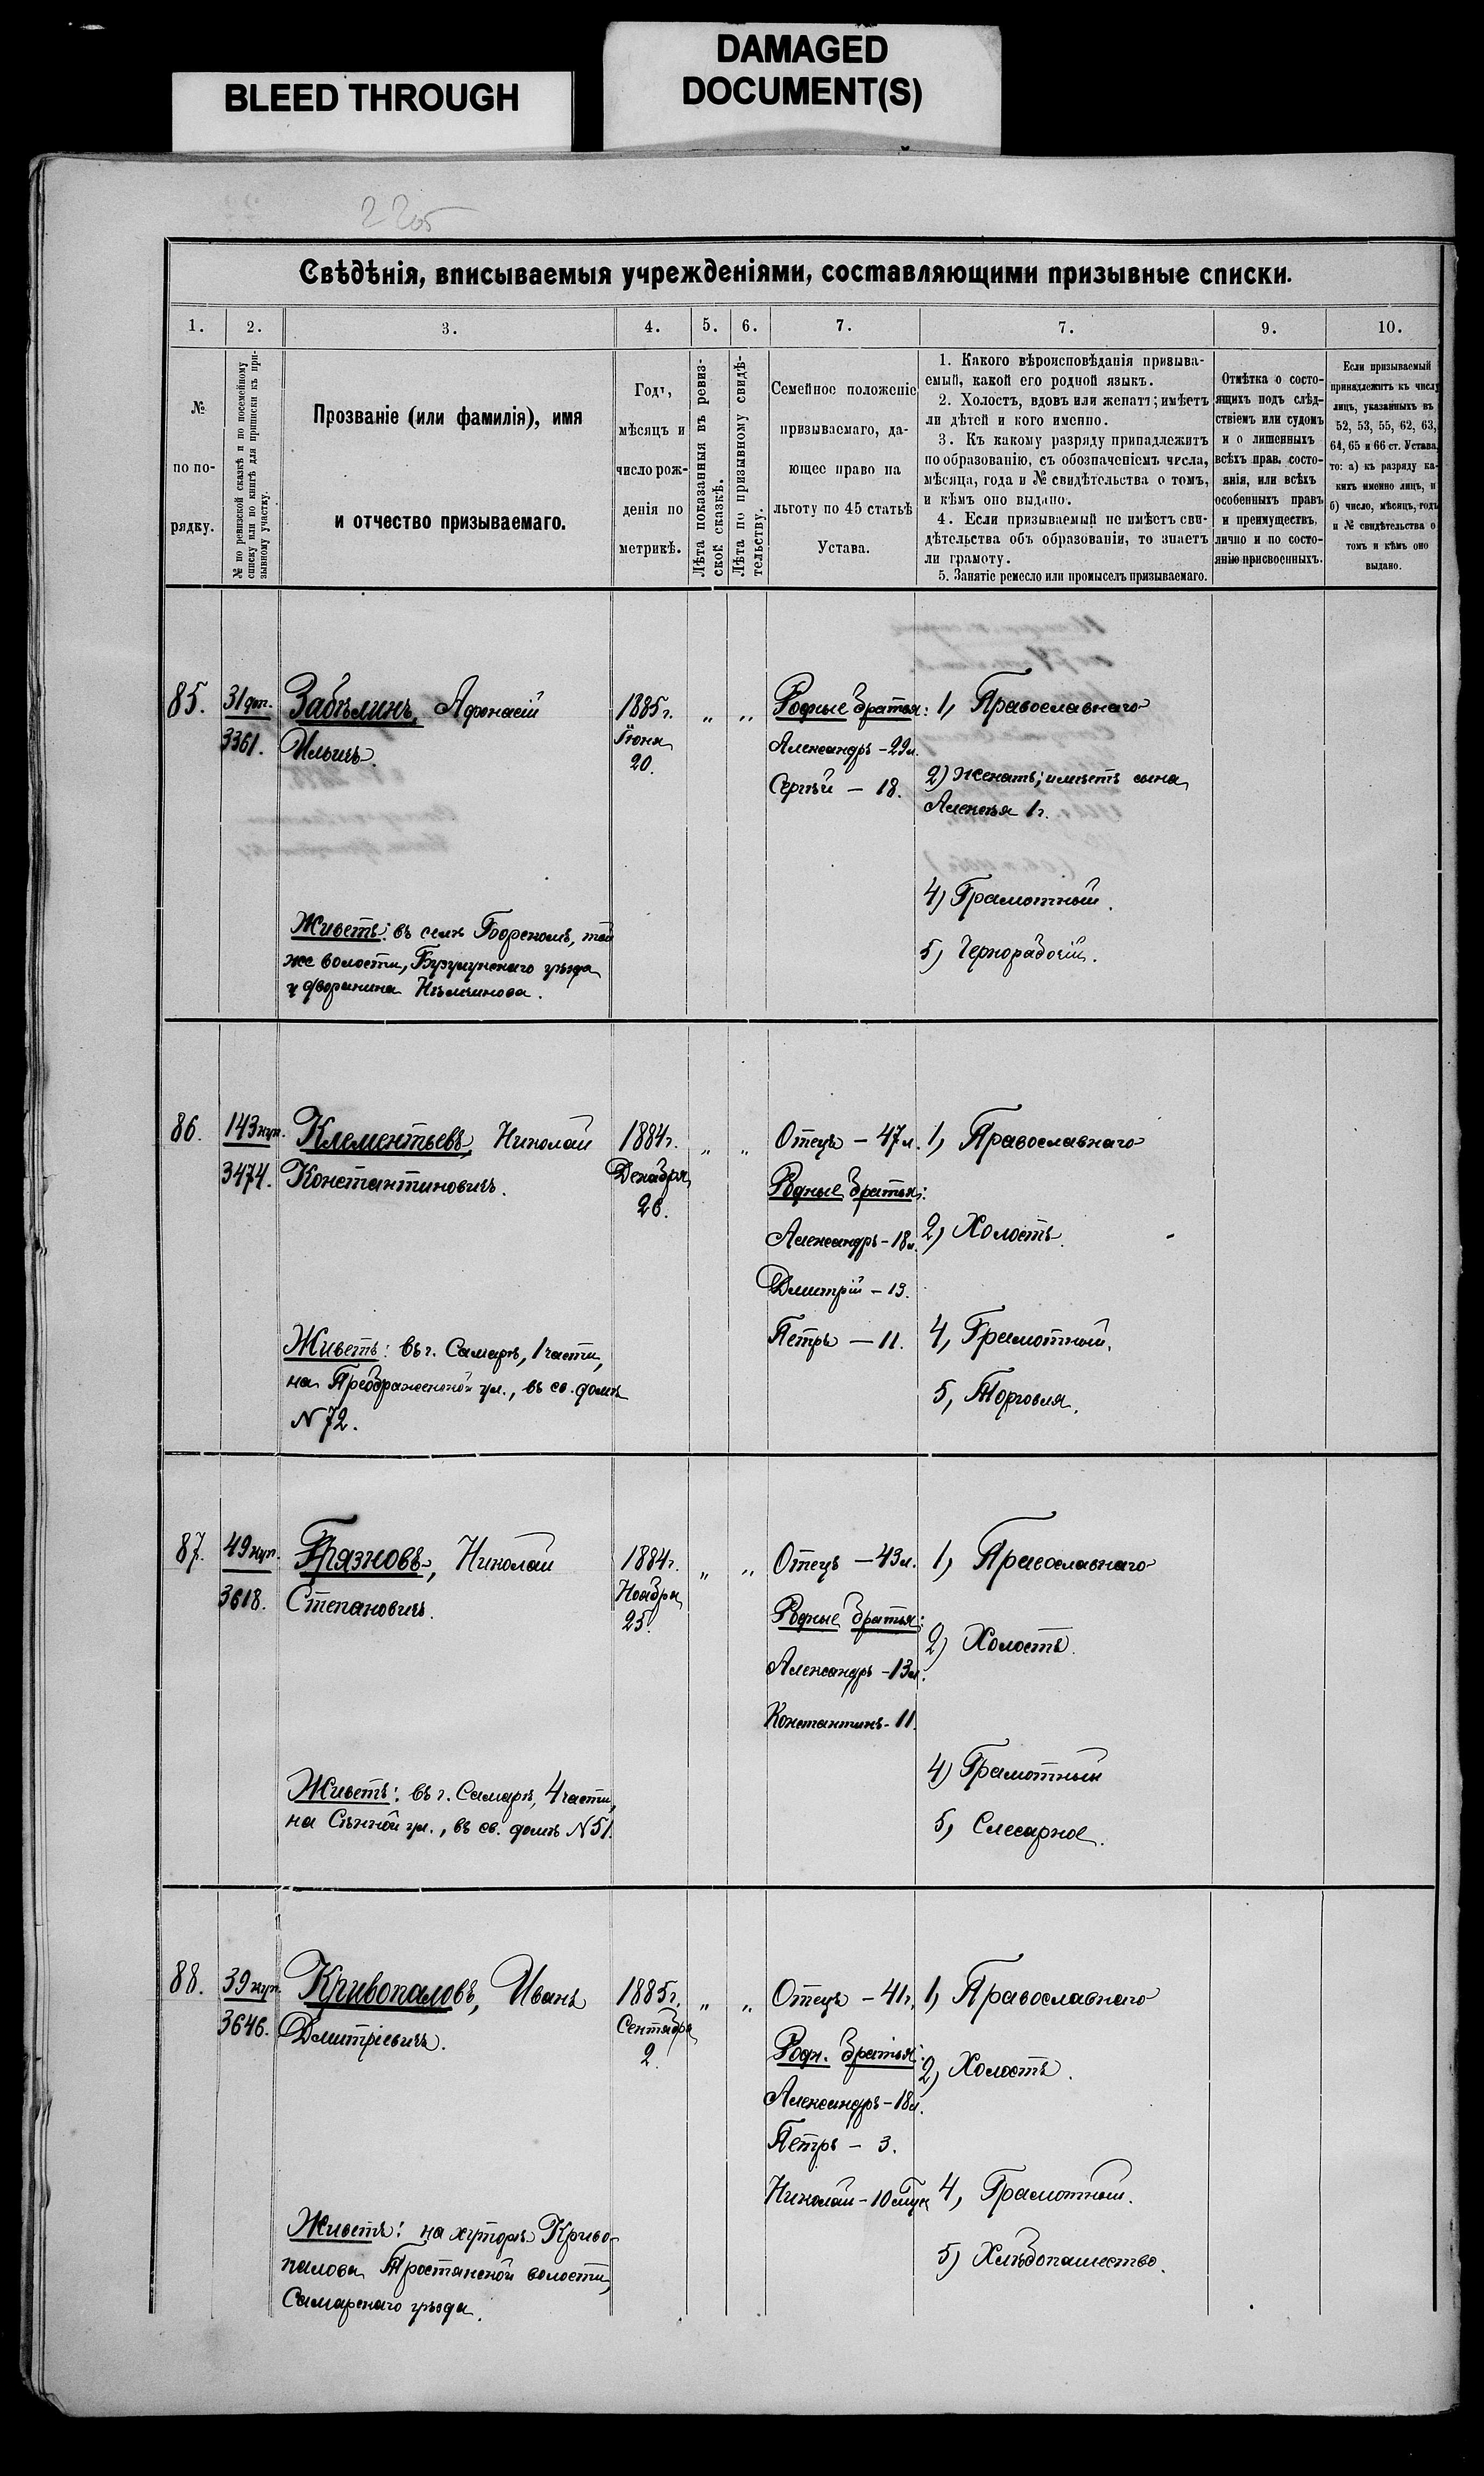 BLEED THROUGH
DAMAGED
DOCUMENT(S)
Свѣдѣнія, вписываемыя учрежденіями, составляющими призывные списки.
1. 2. 3. 4. 5. 6. 7. 7. 9. 10.
№
по по-
рядку.
№ по ревизской сказкѣ и по посемейному
списку или по книгѣ для приписки къ при-
зывному участку.
Прозваніе (или фамилія), имя
и отчество призываемаго.
Годъ,
мѣсяцъ и
число рож-
денія по
метрикѣ.
Лѣта показанныя въ ревиз-
ской сказкѣ.
Лѣта по призывному свидѣ-
тельству.
Семейное положеніе
призываемаго, да-
ющее право на
льготу по 45 статьѣ
Устава.
1. Какого вѣроисповѣданія призыва-
емый, какой его родной языкъ.
2. Холостъ, вдовъ или женатъ; имѣетъ
ли дѣтей и кого именно.
3. Къ какому разряду принадлежитъ
по образованію, съ обозначеніемъ числа,
мѣсяца, года и № свидѣтельства о томъ,
и кѣмъ оно выдано.
4. Если призываемый не имѣетъ сви-
дѣтельства объ образованіи, то знаетъ
ли грамоту.
5. Занятіе ремесло или промыселъ призываемаго.
Отмѣтка о состо-
ящихъ подъ слѣд-
ствіемъ или судомъ
и о лишенныхъ
всѣхъ прав. состо-
янія, или всѣхъ
особенныхъ правъ
и преимуществъ,
лично и по состо-
янію присвоенныхъ.
Если призываемый
принадлежитъ къ числу
лицъ, указанныхъ въ
52, 53, 55, 62, 63,
64, 65 и 66 ст. Устава,
то: а) къ разряду ка-
кихъ именно лицъ, и
б) число, мѣсяцъ, годъ
и № свидѣтельства о
томъ и кѣмъ оно
выдано.
85.
31 доп.
3361.
Забѣлинъ, Афонасій
Ильичъ.
Живетъ: въ селѣ Борскомъ, той
же волости, Бузулукскаго уѣзда
у дворянина Нѣмчинова.
1885 г.
Іюня
20.
" "
Родные братья:
Александръ – 22 л.
Сергѣй – 18.
1, Православнаго
2) Женатъ; имѣетъ сына
Алексѣя 1 г.
4) Грамотный.
5) Чернорабочій.
86.
143 куп.
3474.
Клементьевъ, Николай
Константиновичъ.
Живетъ: въ г. Самарѣ, 1 части,
на Преображенской ул., въ св. домѣ
N 72.
1884 г.
Декабря
26.
" "
Отецъ – 47 л.
Родные братья:
Александръ – 18 л.
Дмитрій – 13.
Петръ – 11.
1, Православнаго
2) Холостъ.
4, Грамотный.
5, Торговля.
87.
49 куп.
3618.
Грязновъ, Николай
Степановичъ.
Живетъ: въ г. Самарѣ, 4 части,
на Сѣнной ул., въ св. домѣ N 51.
1884 г.
Ноября
25.
" "
Отецъ – 43 л.
Родные братья:
Александръ – 13 л.
Константинъ – 11.
1, Православнаго
2) Холостъ.
4) Грамотный
5, Слесарное.
88.
39 куп.
3646.
Кривопаловъ, Иванъ
Дмитріевичъ.
Живетъ: на хуторѣ Криво-
палова Тростянской волости,
Самарскаго уѣзда.
1885 г.
Сентября
2.
" "
Отецъ – 41 г.
Родн. братья:
Александръ – 18 л.
Петръ – 3.
Николай – 10 мѣся
1, Православнаго
2, Холостъ.
4, Грамотный.
5) Хлѣбопашество.